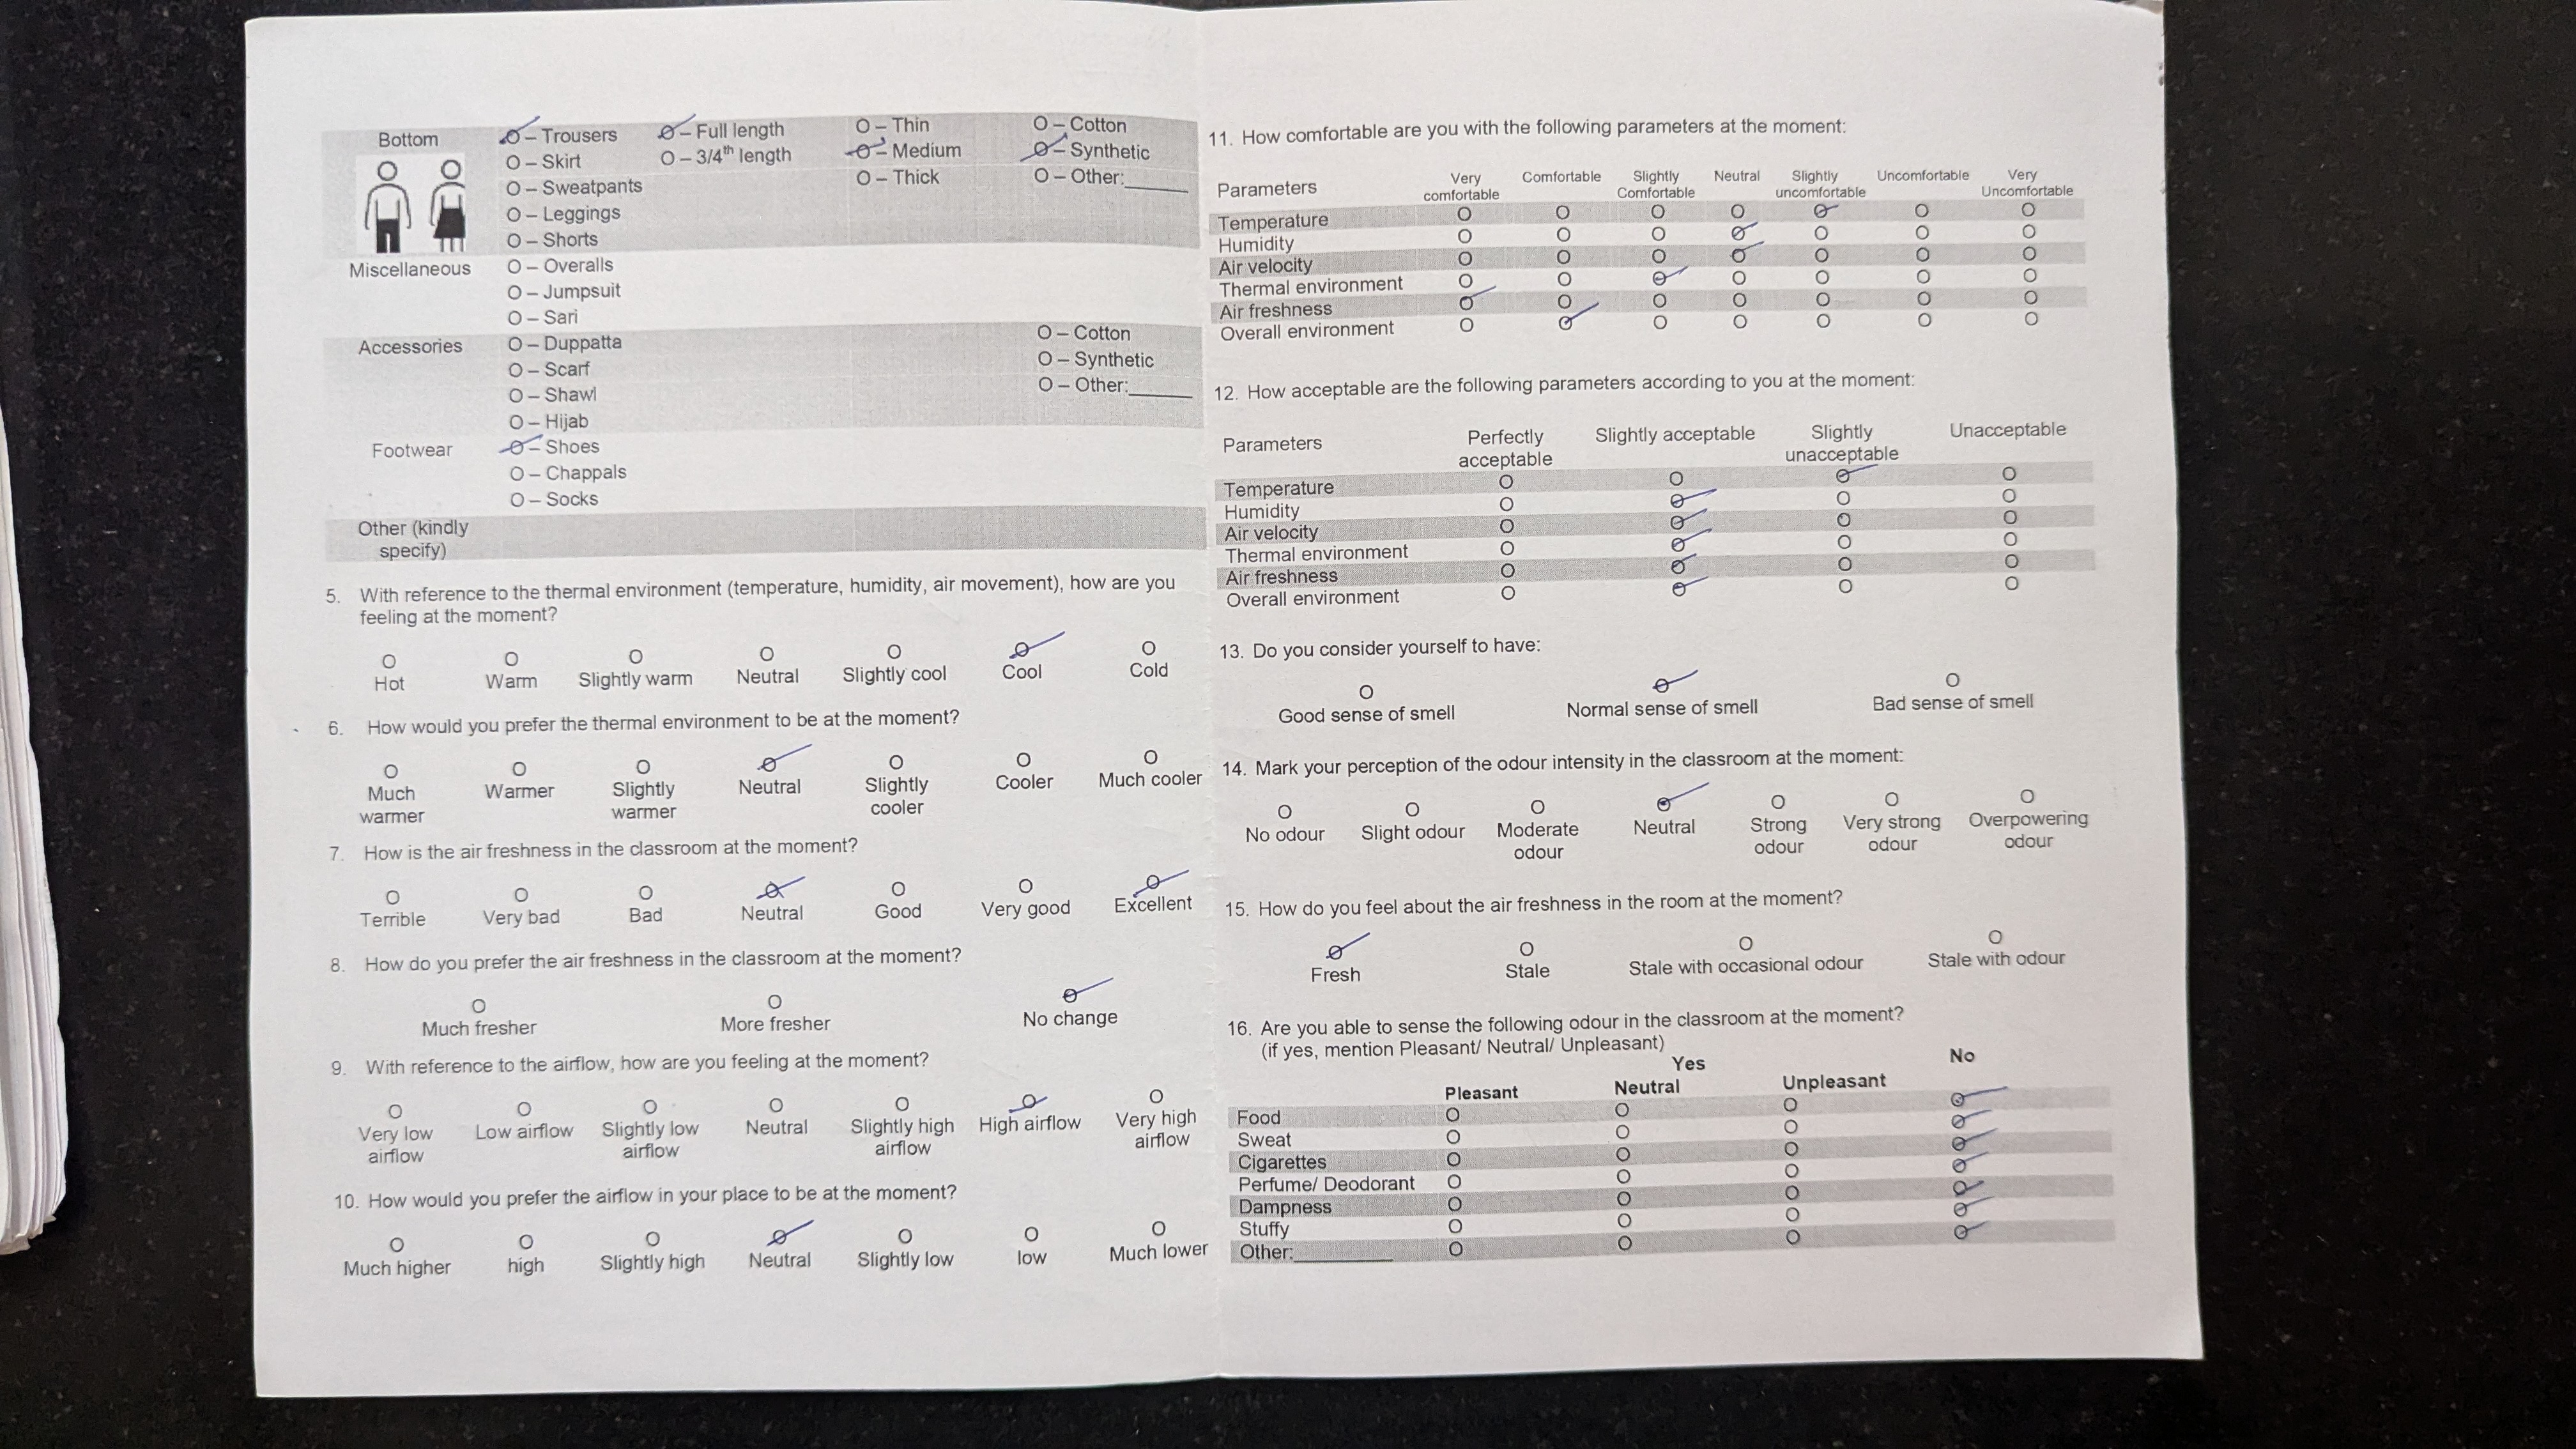 Bottom
O – Trousers
O – Full length
O – Thin
O – Cotton
O – Skirt
O – 3/4th length
O – Medium
O – Synthetic
O – Sweatpants
O – Thick
O – Other:______
O – Leggings
O – Shorts
Miscellaneous
O – Overalls
O – Jumpsuit
O – Sari
Accessories
O – Duppatta
O – Cotton
O – Scarf
O – Synthetic
O – Shawl
O – Other:______
O – Hijab
Footwear
O – Shoes
O – Chappals
O – Socks
Other (kindly
specify)
5. With reference to the thermal environment (temperature, humidity, air movement), how are you
feeling at the moment?
O O O O O O O
Hot Warm Slightly warm Neutral Slightly cool Cool Cold
6. How would you prefer the thermal environment to be at the moment?
O O O O O O O
Much Warmer Slightly Neutral Slightly Cooler Much cooler
warmer warmer cooler
7. How is the air freshness in the classroom at the moment?
O O O O O O O
Terrible Very bad Bad Neutral Good Very good Excellent
8. How do you prefer the air freshness in the classroom at the moment?
O O O
Much fresher More fresher No change
9. With reference to the airflow, how are you feeling at the moment?
O O O O O O O
Very low Low airflow Slightly low Neutral Slightly high High airflow Very high
airflow airflow airflow airflow
10. How would you prefer the airflow in your place to be at the moment?
O O O O O O O
Much higher high Slightly high Neutral Slightly low low Much lower
11. How comfortable are you with the following parameters at the moment:
Parameters Very Comfortable Slightly Neutral Slightly Uncomfortable Very
comfortable Comfortable uncomfortable Uncomfortable
Temperature O O O O O O O
Humidity O O O O O O O
Air velocity O O O O O O O
Thermal environment O O O O O O O
Air freshness O O O O O O O
Overall environment O O O O O O O
12. How acceptable are the following parameters according to you at the moment:
Parameters Perfectly Slightly acceptable Slightly Unacceptable
acceptable unacceptable
Temperature O O O O
Humidity O O O O
Air velocity O O O O
Thermal environment O O O O
Air freshness O O O O
Overall environment O O O O
13. Do you consider yourself to have:
O O O
Good sense of smell Normal sense of smell Bad sense of smell
14. Mark your perception of the odour intensity in the classroom at the moment:
O O O O O O O
No odour Slight odour Moderate Neutral Strong Very strong Overpowering
odour odour odour odour
15. How do you feel about the air freshness in the room at the moment?
O O O O
Fresh Stale Stale with occasional odour Stale with odour
16. Are you able to sense the following odour in the classroom at the moment?
(if yes, mention Pleasant/ Neutral/ Unpleasant)
Yes No
Pleasant Neutral Unpleasant
Food O O O O
Sweat O O O O
Cigarettes O O O O
Perfume/ Deodorant O O O O
Dampness O O O O
Stuffy O O O O
Other:__________ O O O O